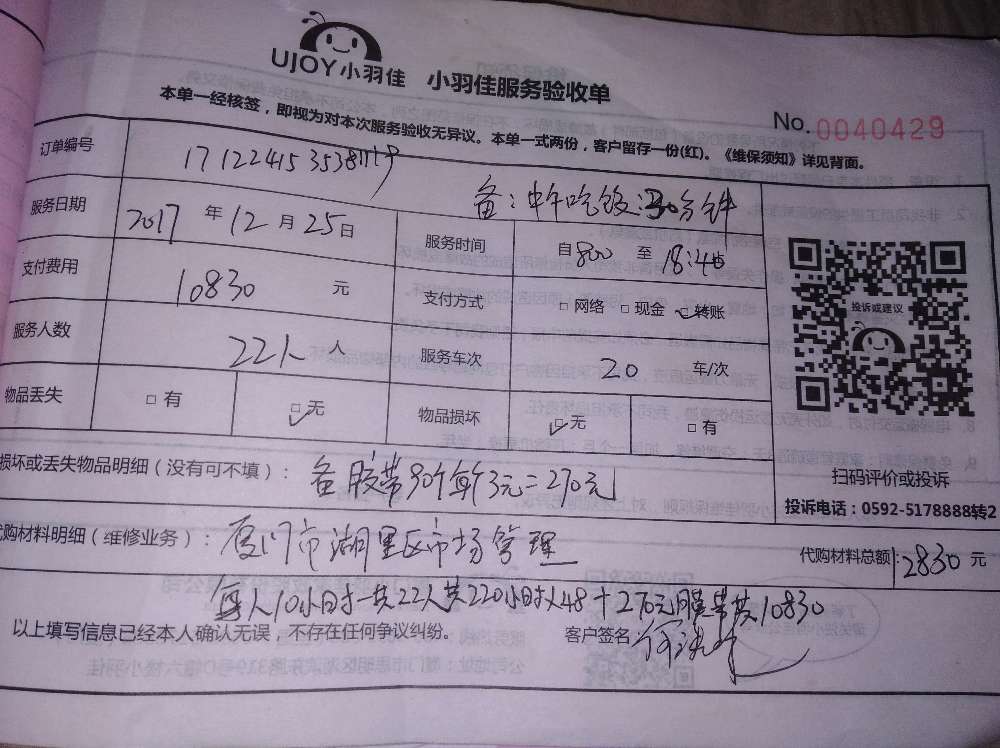 UJOY小羽佳 小羽佳服务验收单
本单一经核签，即视为对本次服务验收无异议。本单一式两份，客户留存一份(红)。《维保须知》详见背面。
No. 0040429
订单编号
备：中午吃饭30分钟
服务日期 2017 年 12 月 25 日 服务时间 自 800 至 18:40
支付费用 10830 元 支付方式 □网络 □现金 □转账
服务人数 22人 人 服务车次 20 车/次
物品丢失 □有 □无 物品损坏 □无 □有
投诉或建议
扫码评价或投诉
投诉电话：0592-5178888转2
损坏或丢失物品明细（没有可不填）： 备胶带90个每个3元=270元
代购材料明细（维修业务）： 厦门市湖里区市场管理 代购材料总额: 12830 元
每人10小时一共22人共220小时人48+270元胶带共10830
以上填写信息已经本人确认无误，不存在任何争议纠纷。 客户签名: